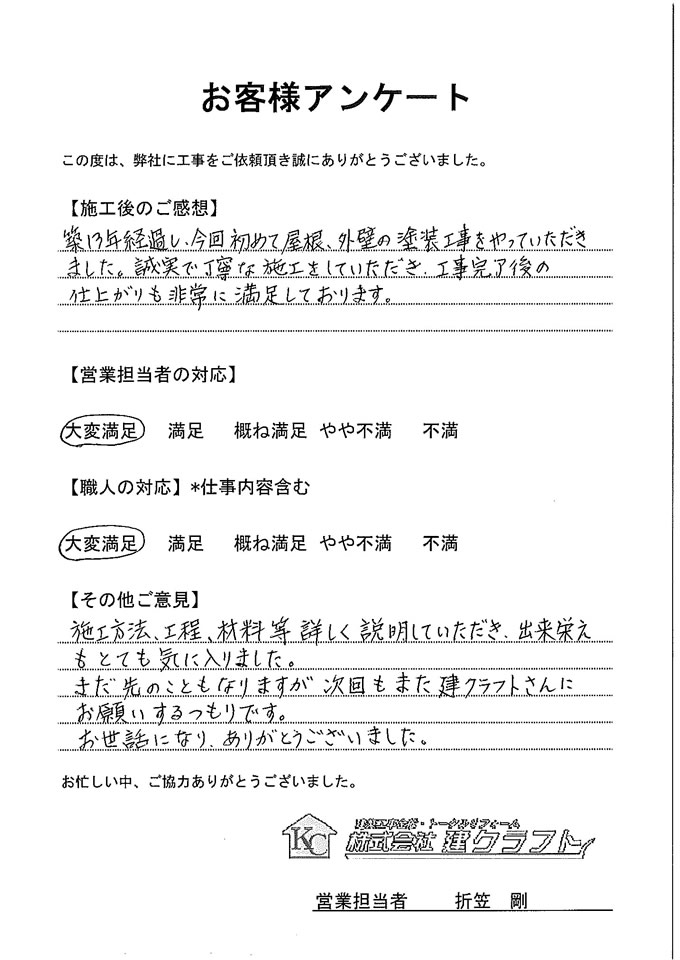 お客様アンケート
この度は、弊社に工事をご依頼頂き誠にありがとうございました。
【施工後のご感想】
築13年経過し、今回初めて屋根、外壁の塗装工事をやっていただき
ました。誠実で丁寧な施工をしていただき、工事完了後の
仕上がりも非常に満足しております。
【営業担当者の対応】
大変満足 満足 概ね満足 やや不満 不満
【職人の対応】*仕事内容含む
大変満足 満足 概ね満足 やや不満 不満
【その他ご意見】
施工方法、工程、材料等詳しく説明していただき、出来栄え
もとても気に入りました。
まだ先のこともなりますが次回もまた建クラフトさんに
お願いするつもりです。
お世話になり、ありがとうございました。
お忙しい中、ご協力ありがとうございました。
KC
トータルリフォーム
株式会社 建クラフト
営業担当者 折笠 剛